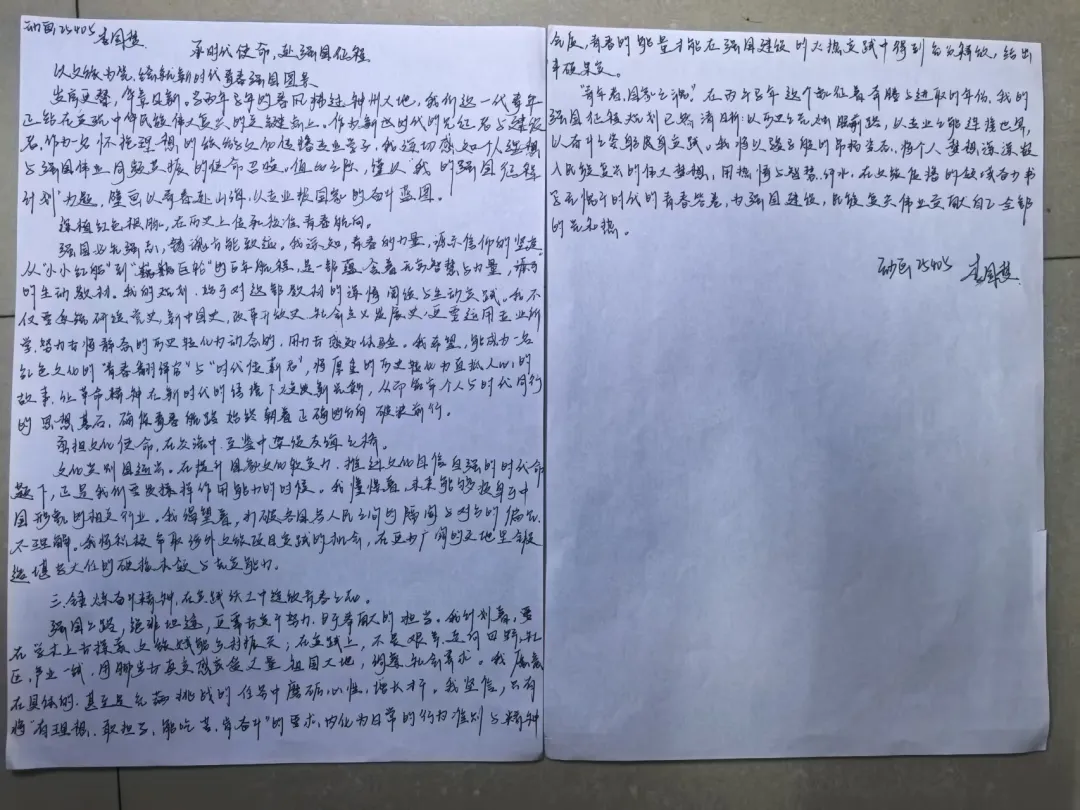 动画25405 李国慧
承时代使命,赴强国征程
以文旅为笔,绘就新时代青春强国图景
岁序更替,华章日新。当丙午马年的春风拂过神州大地,我们这一代青年
正站在实现中华民族伟大复兴的关键点上。作为新时代的见证者与建设
者,作为一名怀抱理想的旅文播专业学子,我深切感知个人理想
与强国伟业同频共振的使命召唤。值此之际,谨以“我的强国征程
计划”为题,擘画以青春赴山海,以专业报国家的奋斗蓝图。
深植红色根脉,在历史上校准青春航向。
强国必先强志,铸魂方能致远。我深知,青春的力量,源于信仰的坚定
从“小小红船”到“巍巍巨轮”的百年航程,是一部蕴含着无穷智慧与力量,
的生动教材。我的规划,始于对这部教材的深情阅读与生动实践。我不
仅要研读党史,新中国史,改革开放史,社会主义发展史,更要运用专业所
学,努力去将静态的历史转化为动态的、用力去感知体验。我希望,能成为一名
红色文化的“青春翻译官”与“时代传薪者”,将厚重的历史转化为直抵人心的
故事,让革命精神在新时代的语境下焕发新光彩,从而筑牢个人与时代同行
的思想基石,确保青春航路始终朝着正确的方向破浪前行。
勇担文化使命,在交流中互鉴中架设友谊之桥。
文化兴则国运兴。在提升国家文化软实力、推进文化自信自强的时代命
题下,正是我们发挥作用能力的时候。我憧憬着,未来能够投身于中
国形象的相关行业。我渴望着,打破各国与人民之间的隔阂与对方的偏见
不理解。我将积极争取涉外文旅项目实践的机会,在更为广阔的天地里锻
造堪当大任的硬核本领与先实能力。
三、锤炼奋斗精神,在实践练工中绽放青春之花。
强国之路,绝非坦途,更需要实干努力、勇于奉献的担当。我计划着,要
在学术上去探索文旅赋能乡村振兴;在实践上,不畏艰辛,走向田野、社
区、产业一线,用脚步去真实感受丈量祖国大地,调查社会需求。我愿意
在具体的、甚至是充满挑战的任务中磨砺心性,增长才干。我坚信,只有
将“有理想、敢担当、能吃苦、肯奋斗”的要求,内化为日常的行为准则与精神
食粮,青春的能量才能在强国建设的火热实践中得到充分释放,结出
丰硕果实。
“青年者,国家之魂”。在丙午马年这个象征着奔腾与进取的年份,我的
强国征程规划已然清晰:以历史之光烛照前路,以专业之能连接世界,
以奋斗之姿躬身实践。我将以骏马般的昂扬姿态,将个人梦想深深融
入民族复兴的伟大梦想,用热情与智慧、汗水,在文旅传播的领域奋力书
写无愧于时代的青春答卷,为强国建设,民族复兴伟业贡献自己全部
的光和热。
动画25405 李国慧